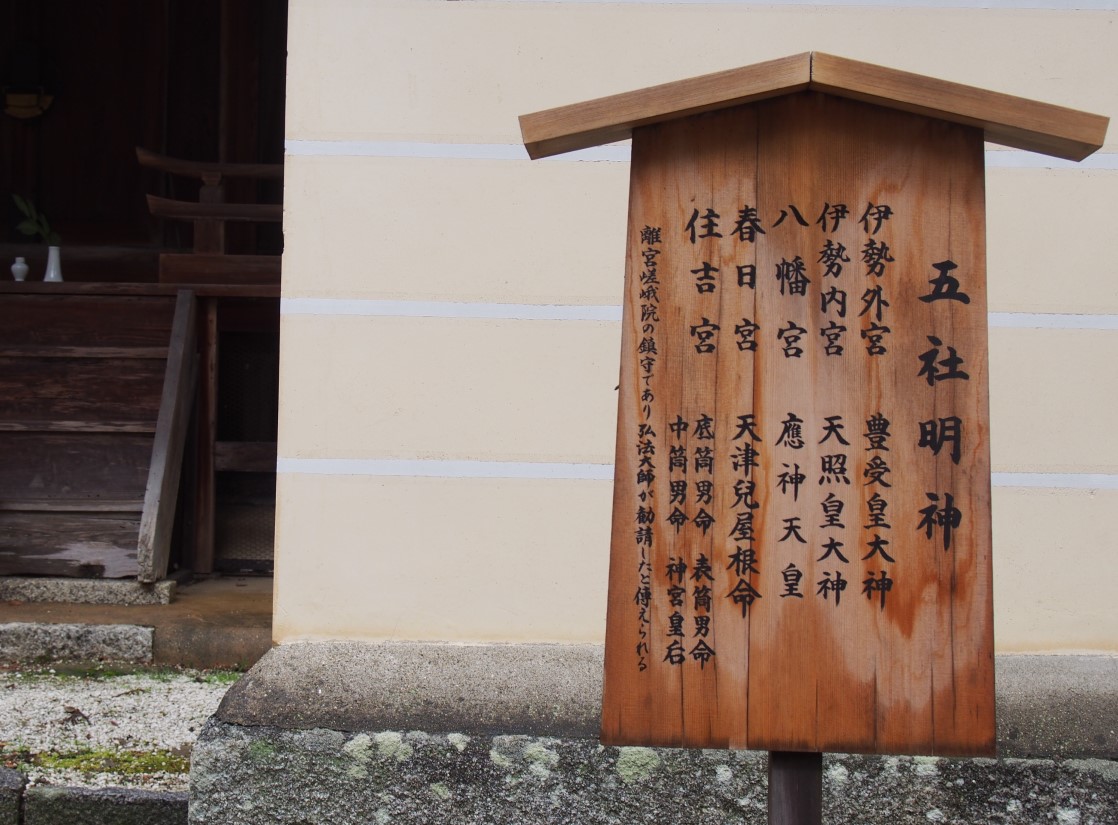 五社明神
伊勢外宮 豊受皇大神
伊勢内宮 天照皇大神
八幡宮 應神天皇
春日宮 天津兒屋根命
住吉宮 底筒男命 表筒男命
中筒男命 神宮皇后
離宮嵯峨院の鎮守であり弘法大師が勧請したと傳えられる